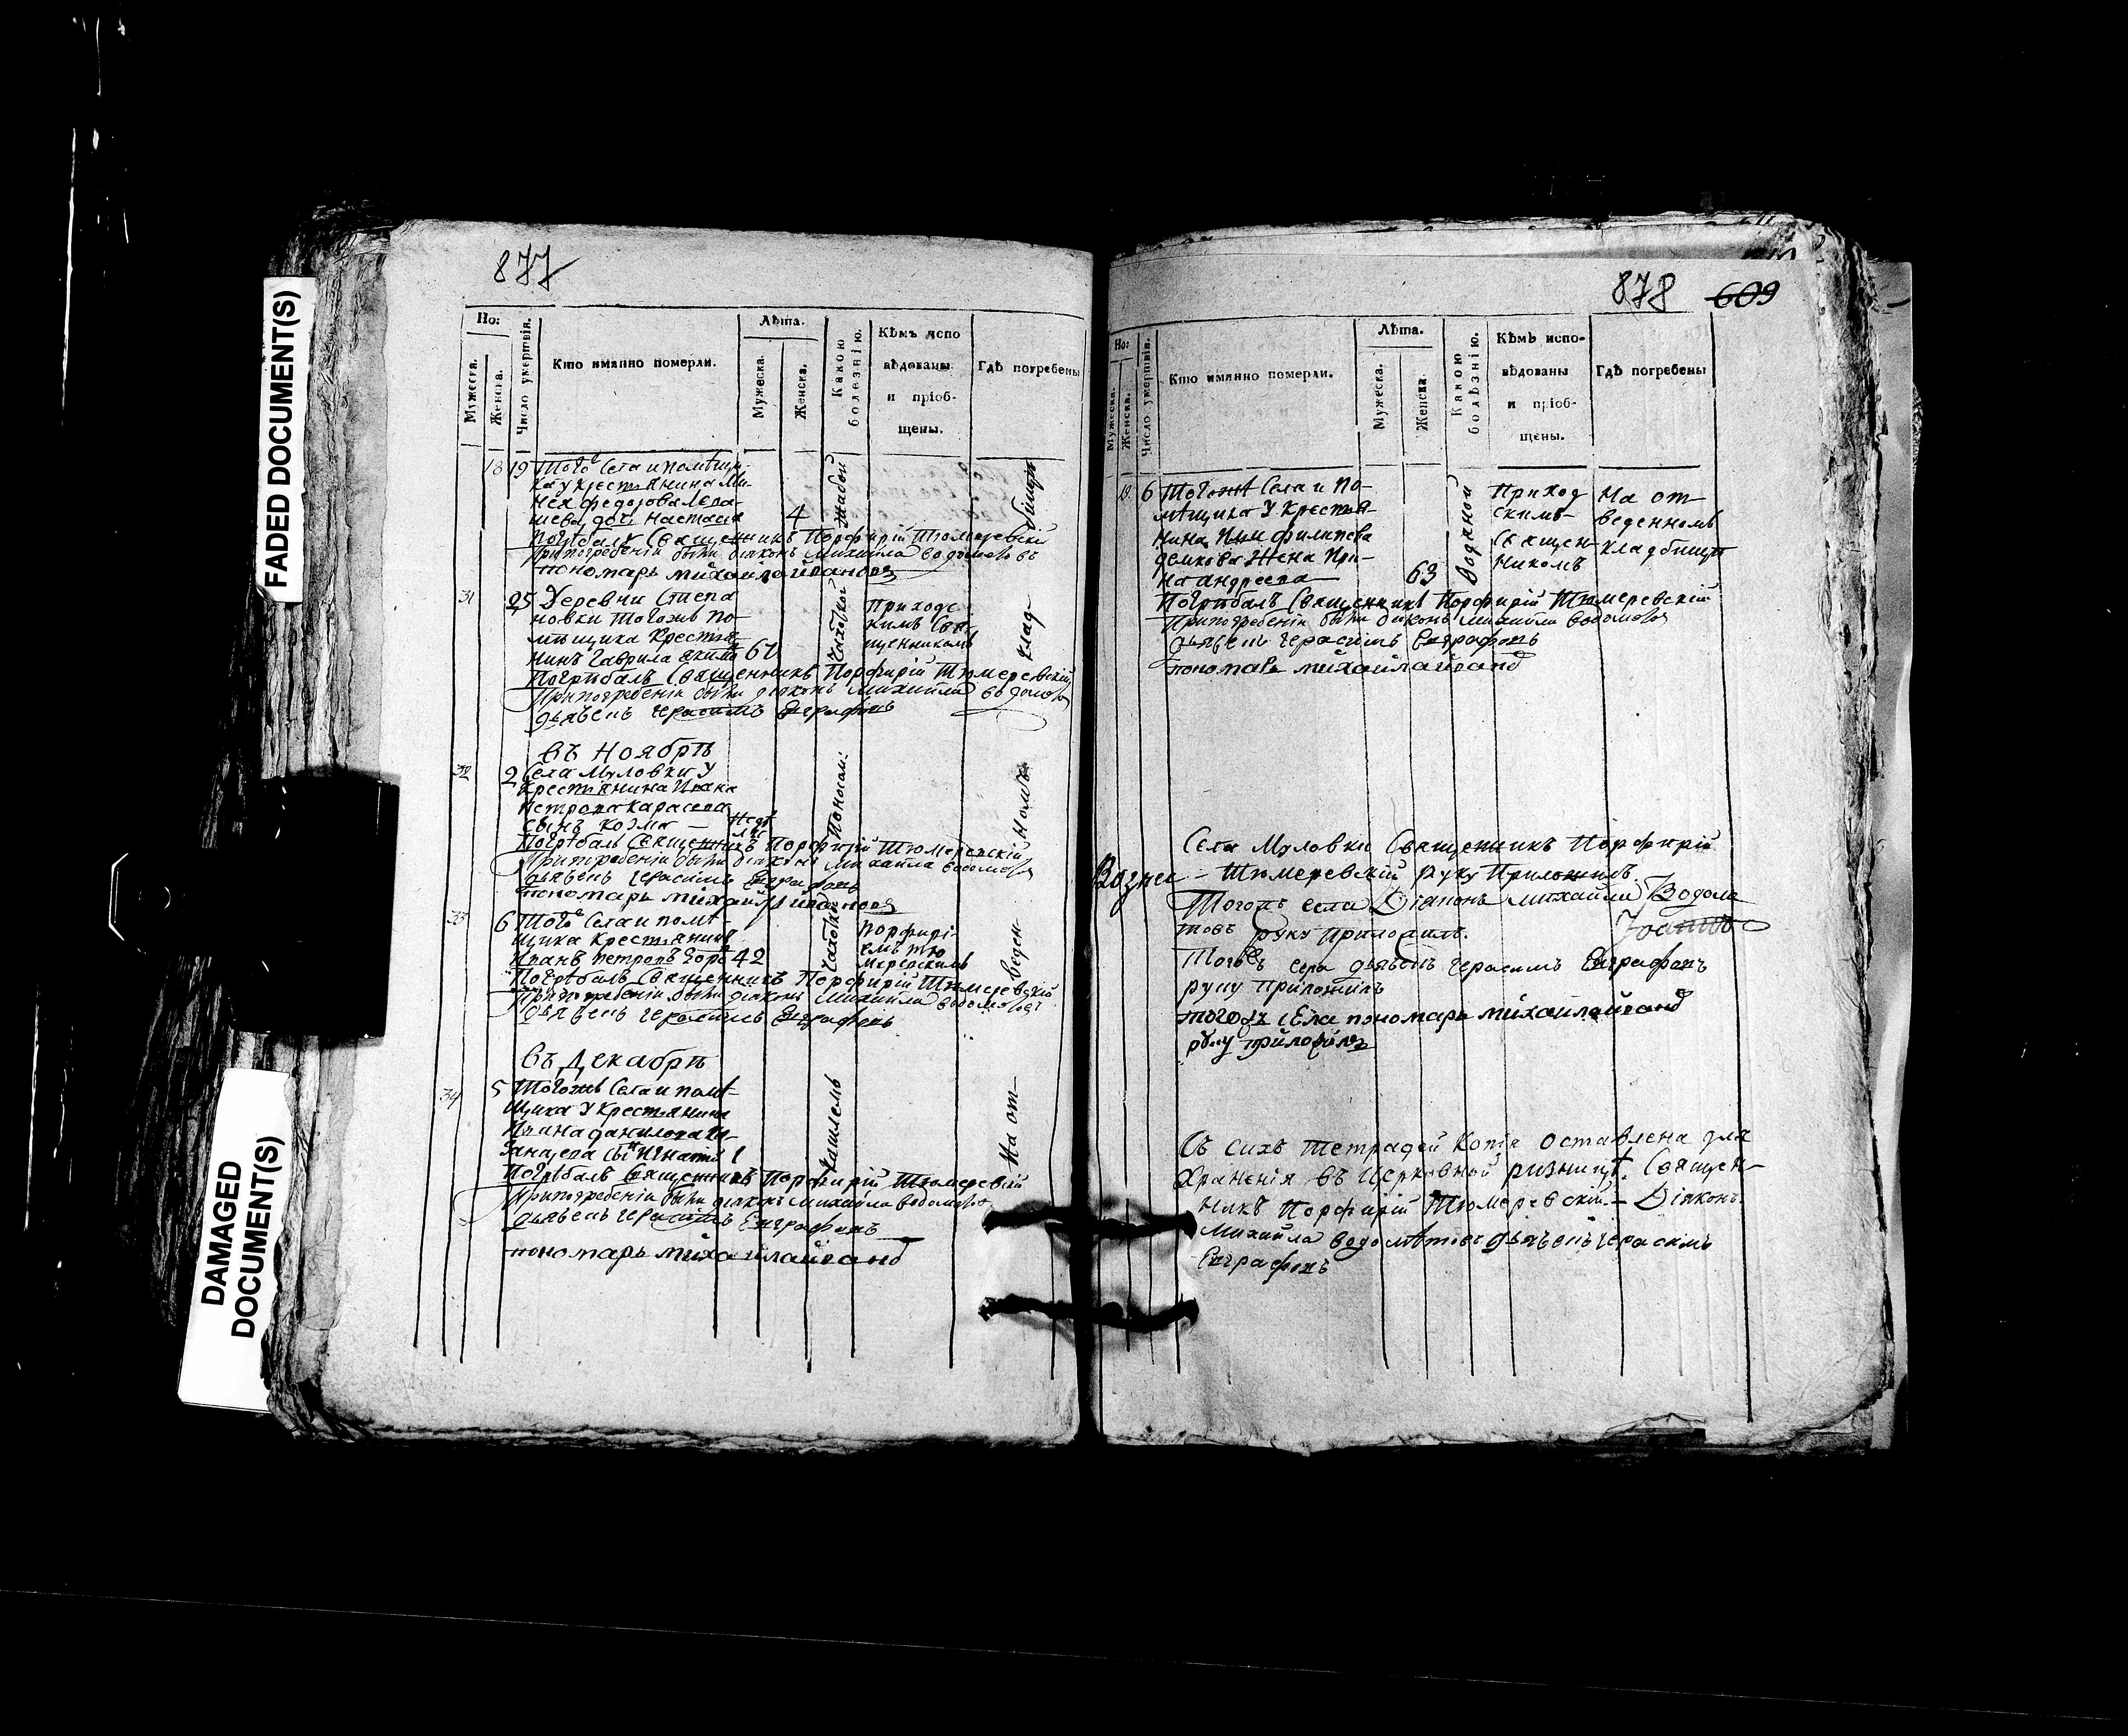 FADED DOCUMENT(S)
DAMAGED
DOCUMENT(S)
877
Но:
Мужеска.
Женска.
Число умертвія.
Кто имянно померли.
Лѣта.
Мужеска.
Женска.
Какою
болезнію.
Кѣмъ испо
вѣдованы
и пріоб-
щены.
Гдѣ погребены
18 19 Тогоже Села и помѣщи-
ка у крестьянина Ми-
нея федорова
дочь Настасія 4 Жабой
Погрѣбалъ Священникъ Порфирій Тюмеревскій
При погребеніи были діяконъ Михайла Водолетовъ
пономарь михайла ивановъ
31 25 Деревни Степа
новки Тогожъ По-
мѣщика Крестья-
нинъ Гаврила 67 Чахоткой
Приходс
кимъ Свя-
щенникомъ
Погрѣбалъ Священникъ Порфирій Тюмеревскій
При погребеніи были діяконъ Михайла
дьячекъ Герасимъ Евграфовъ
въ Ноябрѣ
32 2 Села Муловки У
Крестьянина Ивана
Петрова карасева
сынъ козма Поносом:
Погрѣбалъ Священникъ Порфирій Тюмеревскій
При погребеніи были діяконъ Михайла
дьячекъ Герасимъ Евграфовъ
пономарь михайла ивановъ
33 6 Тогоже Села и помѣ-
щика Крестьянинъ
Иванъ петровъ 42 Чахотка
Порфирі-
емъ Тю
меревскимъ
Погрѣбалъ Священникъ Порфирій Тюмеревскій
При погребеніи были діяконъ Михайла
дьячекъ Герасимъ Евграфовъ
въ Декабрѣ
34 5 Тогожъ Села и помѣ-
щика У Крестьянина
Ивана данилова
сынъ Игнатій 1 кашлемъ
Погрѣбалъ Священникъ Порфирій Тюмеревскій
При погребеніи были діяконъ Михайла
дьячекъ Герасимъ Евграфовъ
пономарь михайла иванов
На от-
веден-
номъ
клад-
бищѣ
878 609
Но:
Мужеска.
Женска.
Число умертвія.
Кто имянно померли.
Лѣта.
Мужеска.
Женска
Какою
болѣзнію.
Кѣмъ испо-
вѣдованы
и пріоб-
щены.
Гдѣ погребены
19 6 Тогожъ Села и По-
мѣщика У Крестья-
нина филипова
Жена Ири-
на андреева 63 Водяной
Приход
скимъ
Священ-
никомъ
На от
веденномъ
кладбищѣ
Погрѣбалъ Священникъ Порфирій Тюмеревскій
При погребеніи были діяконъ Михайла
дьячекъ Герасимъ Евграфовъ
пономарь михайла иванов
Села Муловки Священникъ Порфирій
Тюмеревскій руку Приложилъ.
Тогожъ села Діяконъ Михайла Водоле
товъ руку приложилъ.
Тогожъ села дьячекъ Герасимъ Евграфовъ
руку приложилъ
тогожъ села пономарь михайла иванов
руку приложилъ
Съ сихъ тетрадей копія оставлена для
Храненія въ Церковной ризницѣ. Священ-
никъ Порфирій Тюмеревскій Діяконъ
Михайла Водолетовъ дьячекъ Герасимъ
Евграфовъ